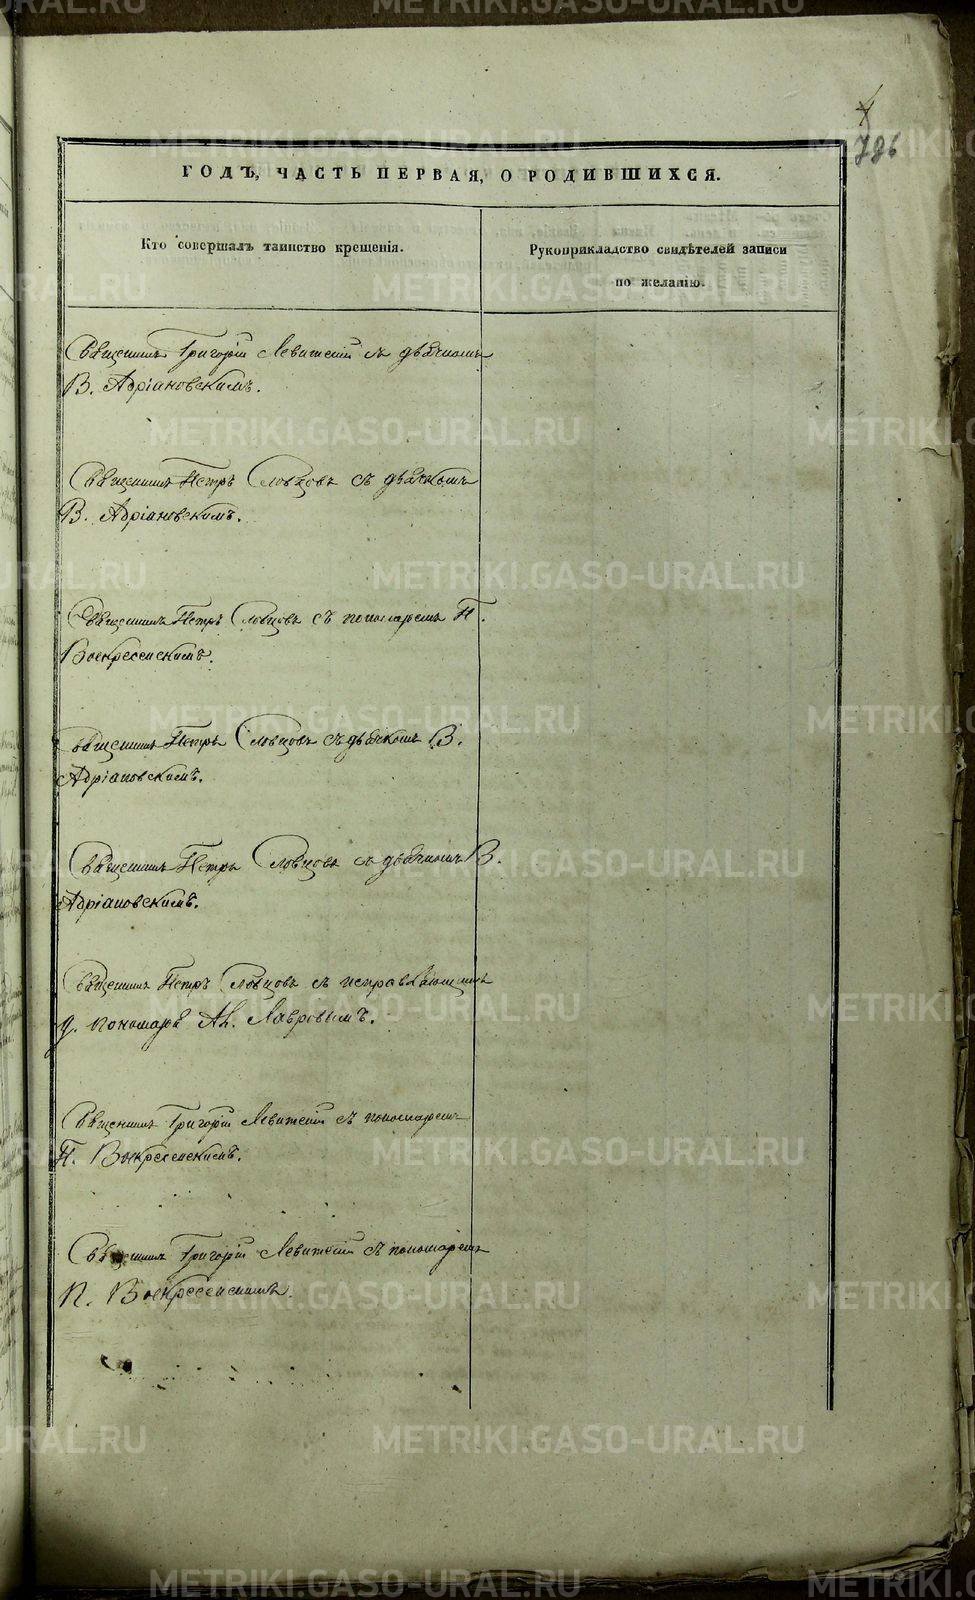 4
786
ГОДЪ, ЧАСТЬ ПЕРВАЯ, О РОДИВШИХСЯ.
Кто совершалъ таинство крещенія.
Рукоприкладство свидѣтелей записи
по желанію.
Священникъ Григорій Левитскій съ дьячкомъ
В. Адріановскимъ.
Священникъ Петръ Словцовъ съ дьячкомъ
В. Адріановскимъ.
Священникъ Петръ Словцовъ съ пономаремъ П.
Воскресенскимъ.
Священникъ Петръ Словцовъ съ дьячкомъ В.
Адріановскимъ.
Священникъ Петръ Словцовъ съ дьячкомъ В.
Адріановскимъ.
Священникъ Петръ Словцовъ съ исправляющимъ
д. пономаря Ал. Лавровымъ.
Священникъ Григорій Левитскій съ пономаремъ
П. Воскресенскимъ.
Священникъ Григорій Левитскій съ пономаремъ
П. Воскресенскимъ.
METRIKI.GASO-URAL.RU